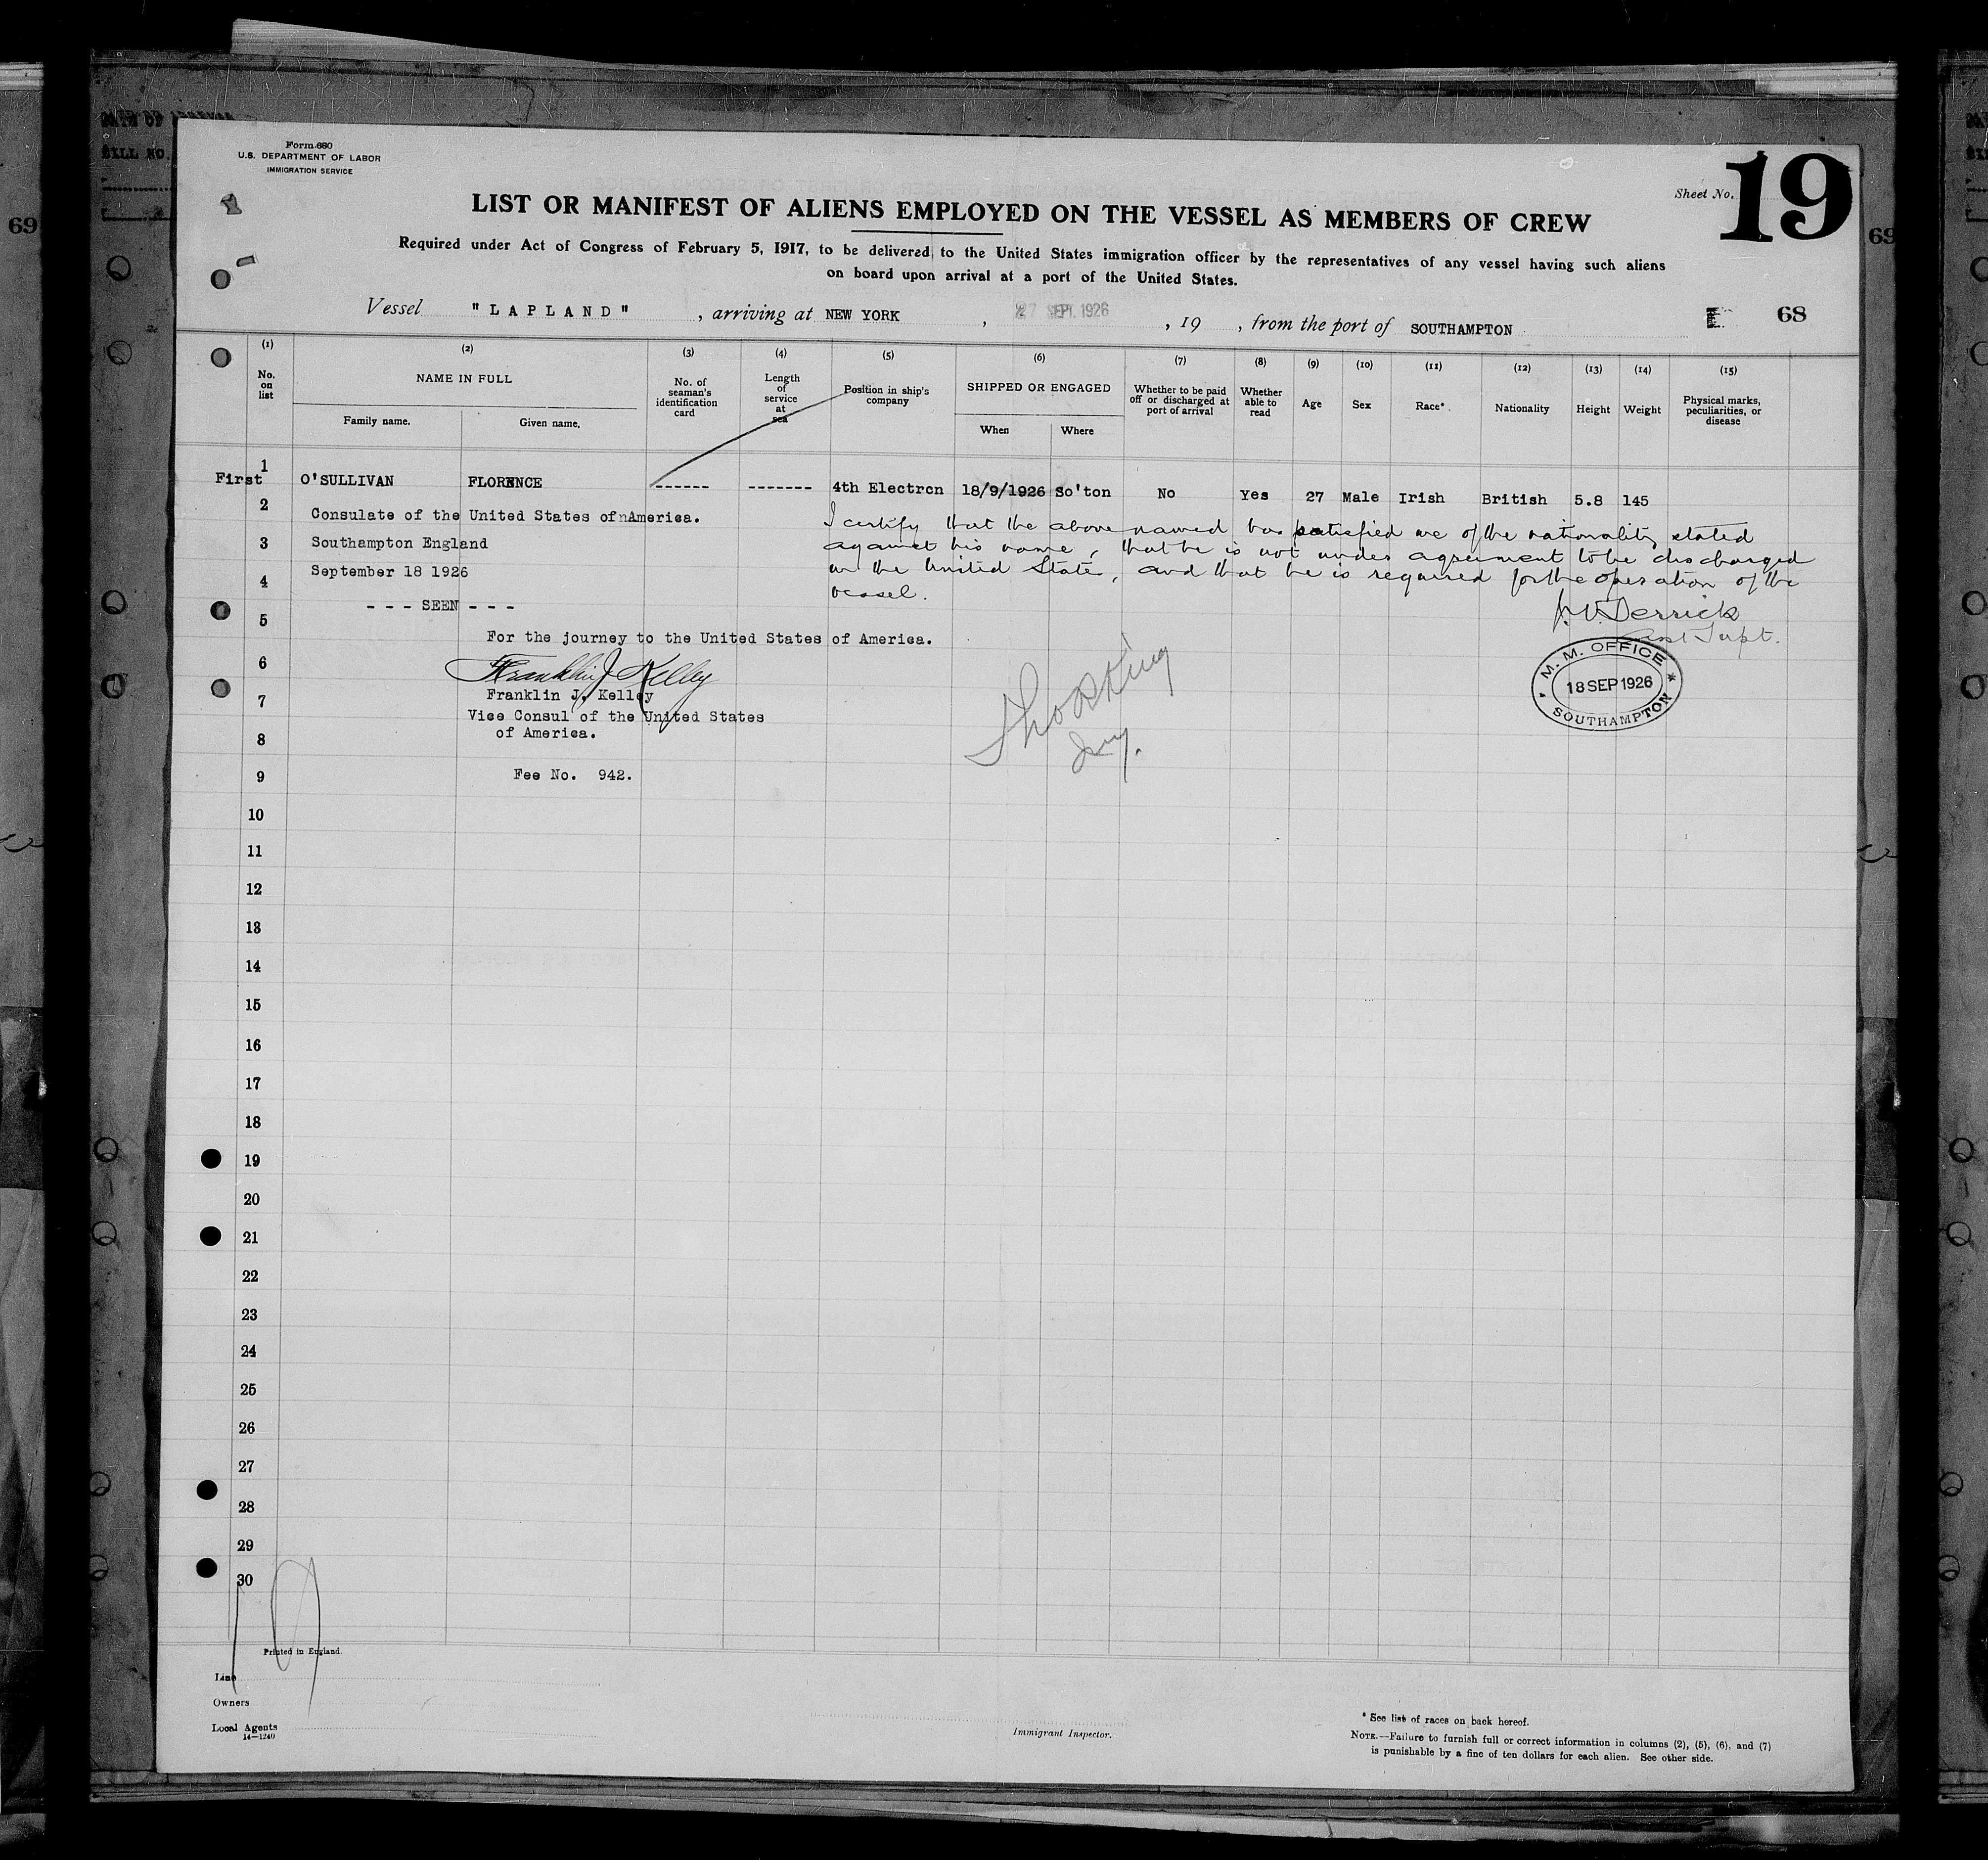 Form 680
U.S. DEPARTMENT OF LABOR
IMMIGRATION SERVICE
Sheet No. 19
LIST OR MANIFEST OF ALIENS EMPLOYED ON THE VESSEL AS MEMBERS OF CREW
Required under Act of Congress of February 5, 1917, to be delivered to the United States immigration officer by the representatives of any vessel having such aliens
on board upon arrival at a port of the United States.
Vessel "LAPLAND", arriving at NEW YORK, 27 SEPT. 1926, 19 , from the port of SOUTHAMPTON E 68
(1) (2) (3) (4) (5) (6) (7) (8) (9) (10) (11) (12) (13) (14) (15)
No. on list
NAME IN FULL
Family name. Given name.
No. of seaman's identification card
Length of service at sea
Position in ship's company
SHIPPED OR ENGAGED
When Where
Whether to be paid off or discharged at port of arrival
Whether able to read
Age
Sex
Race*
Nationality
Height
Weight
Physical marks, peculiarities, or disease
First 1 O'SULLIVAN FLORENCE ------ ------- 4th Electrcn 18/9/1926 So'ton No Yes 27 Male Irish British 5.8 145
2 Consulate of the United States of America.
3 Southampton England
4 September 18 1926
5 - - - SEEN - - -
For the journey to the United States of America.
6 Franklin J Kelley
7 Franklin J. Kelley
Vice Consul of the United States
8 of America.
9 Fee No. 942.
I certify that the above named has satisfied me of the nationality stated
against his name, that he is not under agreement to be discharged
in the United States, and that he is required for the operation of the
vessel.
Derrick
Asst Supt.
M. M. OFFICE
18 SEP 1926
SOUTHAMPTON
10
11
12
13
14
15
16
17
18
19
20
21
22
23
24
25
26
27
28
29
30
Printed in England.
Line
Owners
Local Agents
14—1240
Immigrant Inspector.
* See list of races on back hereof.
NOTE.—Failure to furnish full or correct information in columns (2), (5), (6), and (7)
is punishable by a fine of ten dollars for each alien. See other side.
69
69